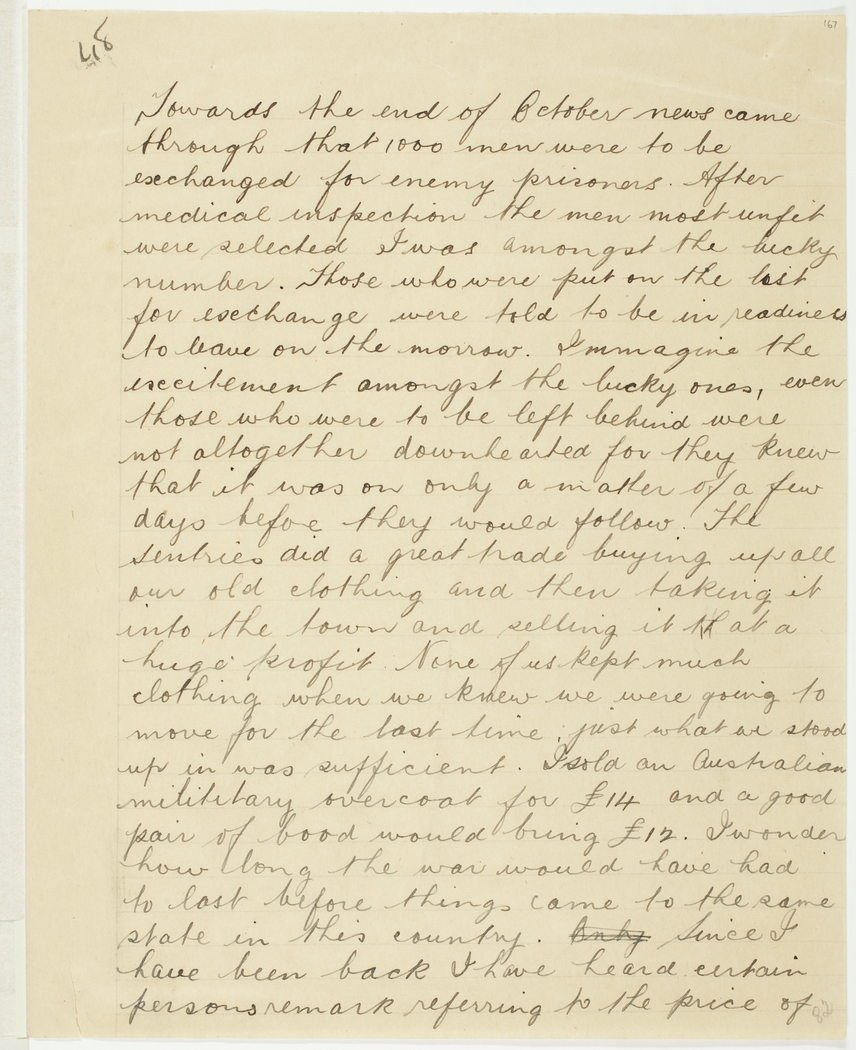 167
Towards the end of October news came
through that 1000 men were to be
exchanged for enemy prisoners. After
medical inspection the men most unfit
were selected I was amongst the lucky
number. Those who were put on the list
for exchange were told to be in readiness
to leave on the morrow. Immagine the
excitement amongst the lucky ones, even
those who were to be left behind were
not altogether downhearted for they knew
that it was on only a matter of a few
days before they would follow. The
sentries did a great trade buying up all
our old clothing and then taking it
into the town and selling it at a
huge profit. None of us kept much
clothing when we knew we were going to
move for the last time, just what we stood
up in was sufficient. I sold an Australian
milititary overcoat for £14 and a good
pair of bood would bring £12. I wonder
how long the war would have had
to last before things came to the same
state in this country. Only Since I
have been back I have heard certain
persons remark referring to the price of
82